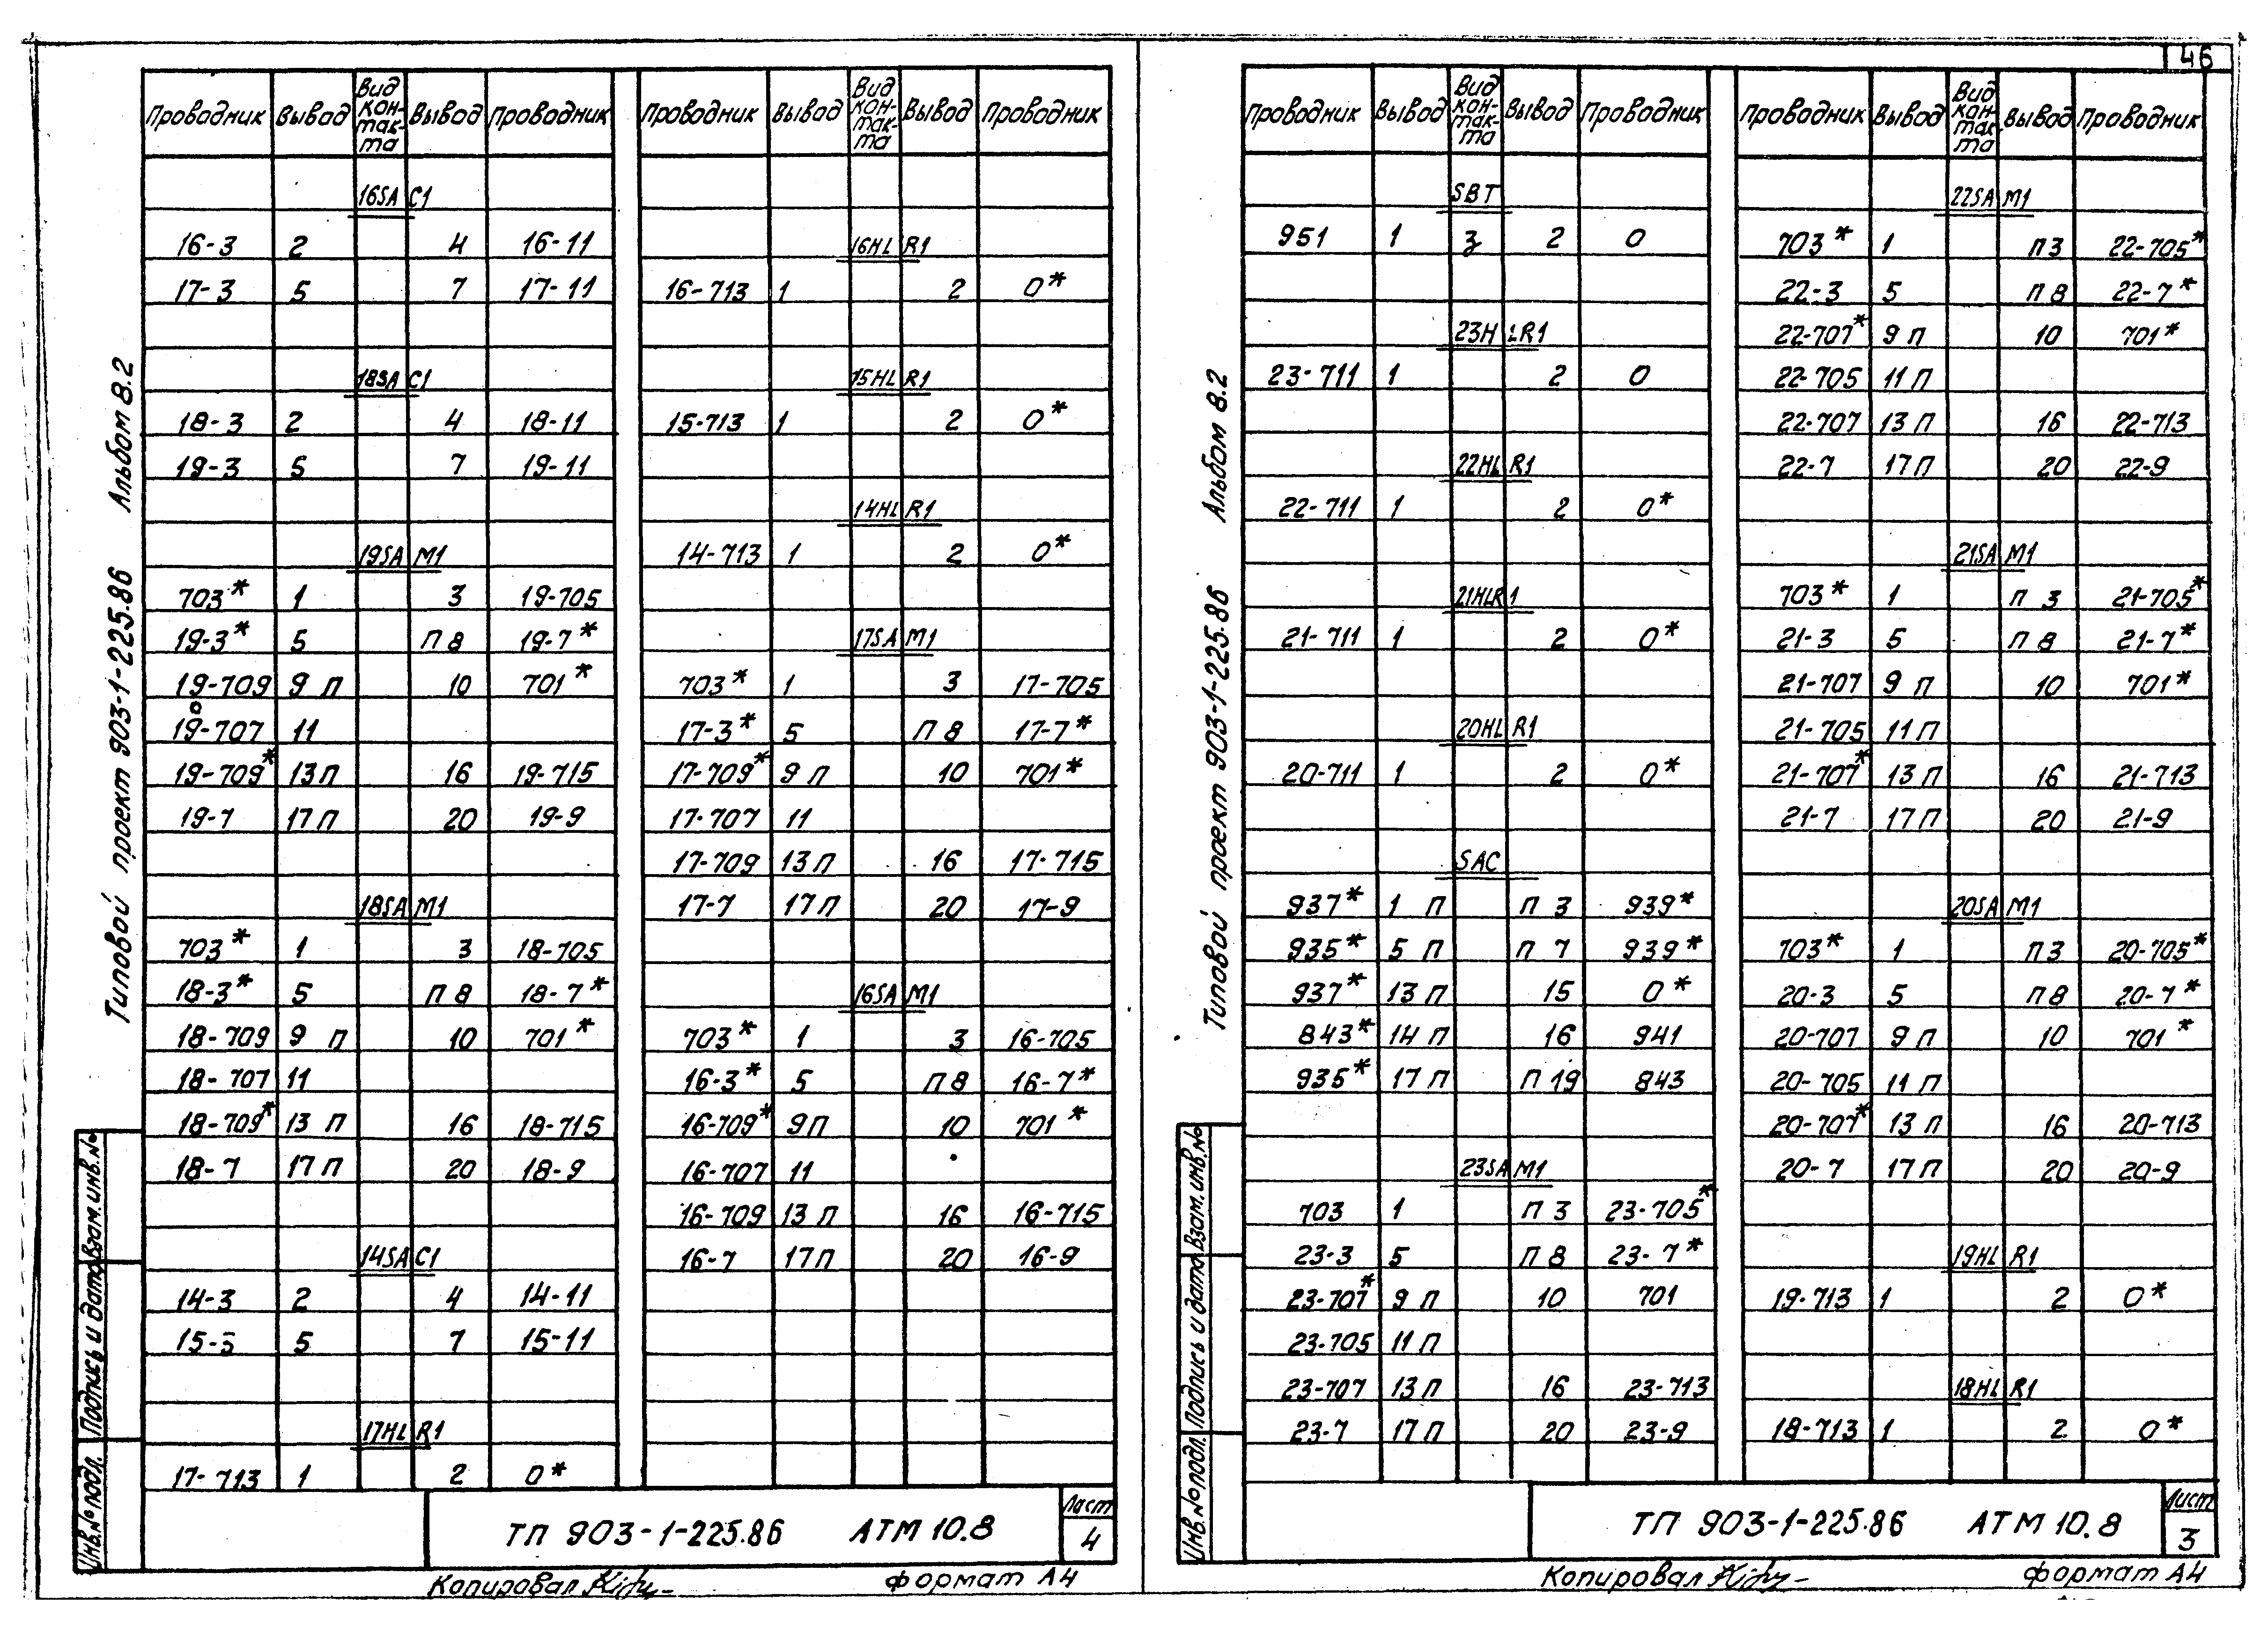 46
Альбом 8.2
Типовой проект 903-1-225.86
Проводник Вывод Вид кон-такта Вывод Проводник
16SAC1
16-3 2 4 16-11
17-3 5 7 17-11
18SAC1
18-3 2 4 18-11
19-3 5 7 19-11
19SAM1
703* 1 3 19-705
19-3* 5 П 8 19-7*
19-709 9 П 10 701*
19-707 11
19-709* 13 П 16 19-715
19-7 17 П 20 19-9
18SAM1
703* 1 3 18-705
18-3* 5 П 8 18-7*
18-709 9 П 10 701*
18-707 11
18-709* 13 П 16 18-715
18-7 17 П 20 18-9
14SAC1
14-3 2 4 14-11
15-3 5 7 15-11
17HLR1
17-713 1 2 0*
Проводник Вывод Вид кон-так-та Вывод Проводник
16HLR1
16-713 1 2 0*
15HLR1
15-713 1 2 0*
14HLR1
14-713 1 2 0*
17SAM1
703* 1 3 17-705
17-3* 5 П 8 17-7*
17-709* 9 П 10 701*
17-707 11
17-709 13 П 16 17-715
17-7 17 П 20 17-9
16SAM1
703* 1 3 16-705
16-3* 5 П 8 16-7*
16-709* 9 П 10 701*
16-707 11
16-709 13 П 16 16-715
16-7 17 П 20 16-9
Инв.№ подл. Подпись и дата Взам.инв.№
ТП 903-1-225.86 АТМ 10.8
Лист
4
Копировал
формат А4
Альбом 8.2
Типовой проект 903-1-225.86
Проводник Вывод Вид кон-так-та Вывод Проводник
SBT
951 1 З 2 0
23HLR1
23-711 1 2 0
22HLR1
22-711 1 2 0*
21HLR1
21-711 1 2 0*
20HLR1
20-711 1 2 0*
SAC
937* 1 П П 3 939*
935* 5 П П 7 939*
937* 13 П 15 0*
843* 14 П 16 941
935* 17 П П 19 843
23SAM1
703 1 П 3 23-705*
23-3 5 П 8 23-7*
23-707* 9 П 10 701
23-705 11 П
23-707 13 П 16 23-713
23-7 17 П 20 23-9
Проводник Вывод Вид кон-так-та Вывод Проводник
22SAM1
703* 1 П 3 22-705*
22-3 5 П 8 22-7*
22-707* 9 П 10 701*
22-705 11 П
22-707 13 П 16 22-713
22-7 17 П 20 22-9
21SAM1
703* 1 П 3 21-705*
21-3 5 П 8 21-7*
21-707 9 П 10 701*
21-705 11 П
21-707* 13 П 16 21-713
21-7 17 П 20 21-9
20SAM1
703* 1 П 3 20-705*
20-3 5 П 8 20-7*
20-707 9 П 10 701*
20-705 11 П
20-707* 13 П 16 20-713
20-7 17 П 20 20-9
19HLR1
19-713 1 2 0*
18HLR1
18-713 1 2 0*
Инв.№ подл. Подпись и дата Взам.инв.№
ТП 903-1-225.86 АТМ 10.8
Лист
3
Копировал
формат А4